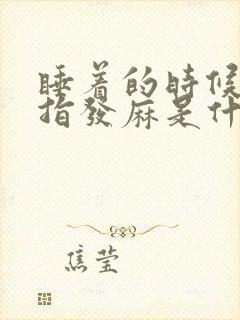 睡着的時候
指發麻是什
焦莹